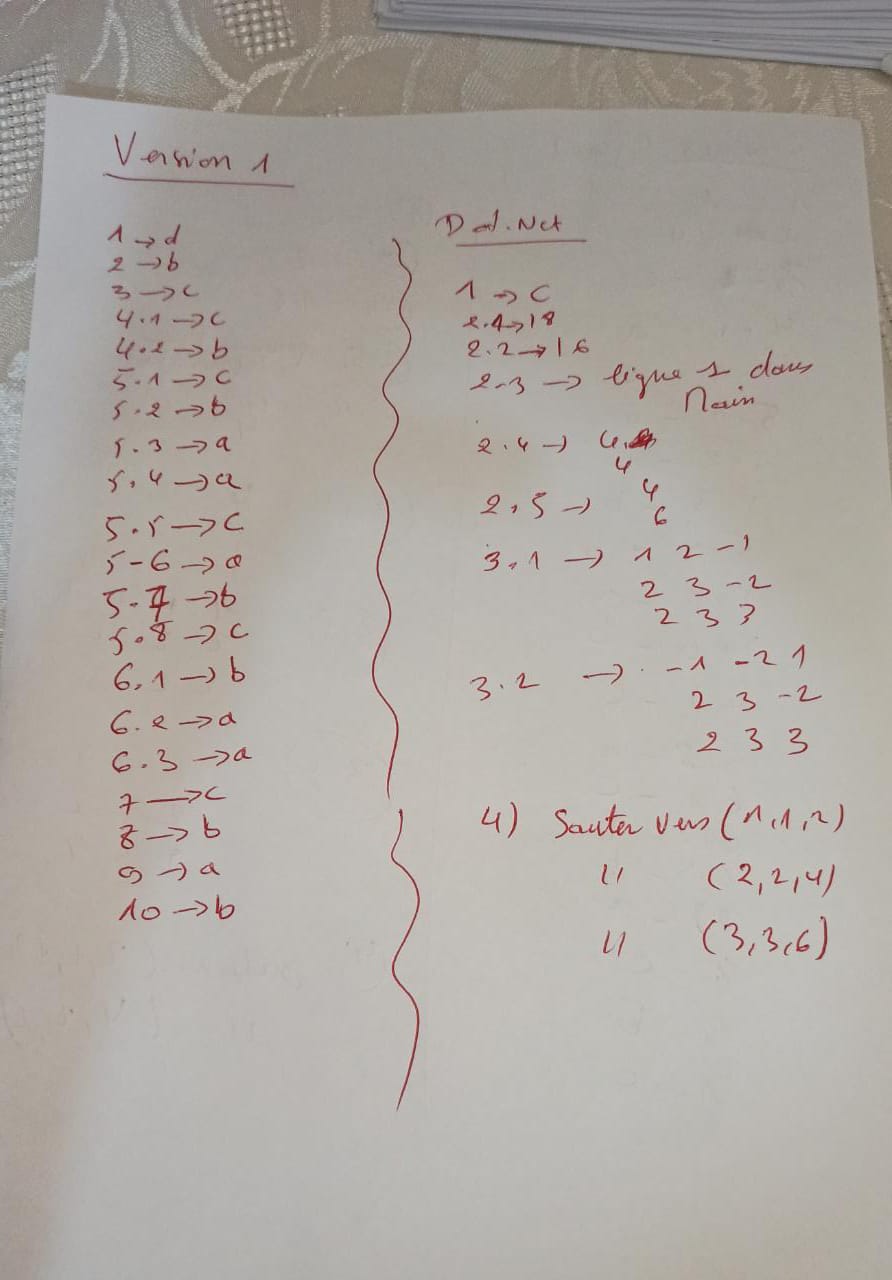 Version 1
1 → d
2 → b
3 → c
4.1 → c
4.2 → b
5.1 → c
5.2 → b
5.3 → a
5.4 → a
5.5 → c
5-6 → a
5.7 → b
5.8 → c
6.1 → b
6.2 → a
6.3 → a
7 → c
8 → b
9 → a
10 → b
Dot.Net
1 → C
2.1 → 18
2.2 → 16
2.3 → ligne 1 dans
Main
2.4 → 4
4
2.5 → 4
6
3.1 → 1 2 -1
2 3 -2
2 3 3
3.2 → -1 -2 1
2 3 -2
2 3 3
4) Sauter vers (1,1,2)
" (2,2,4)
" (3,3,6)